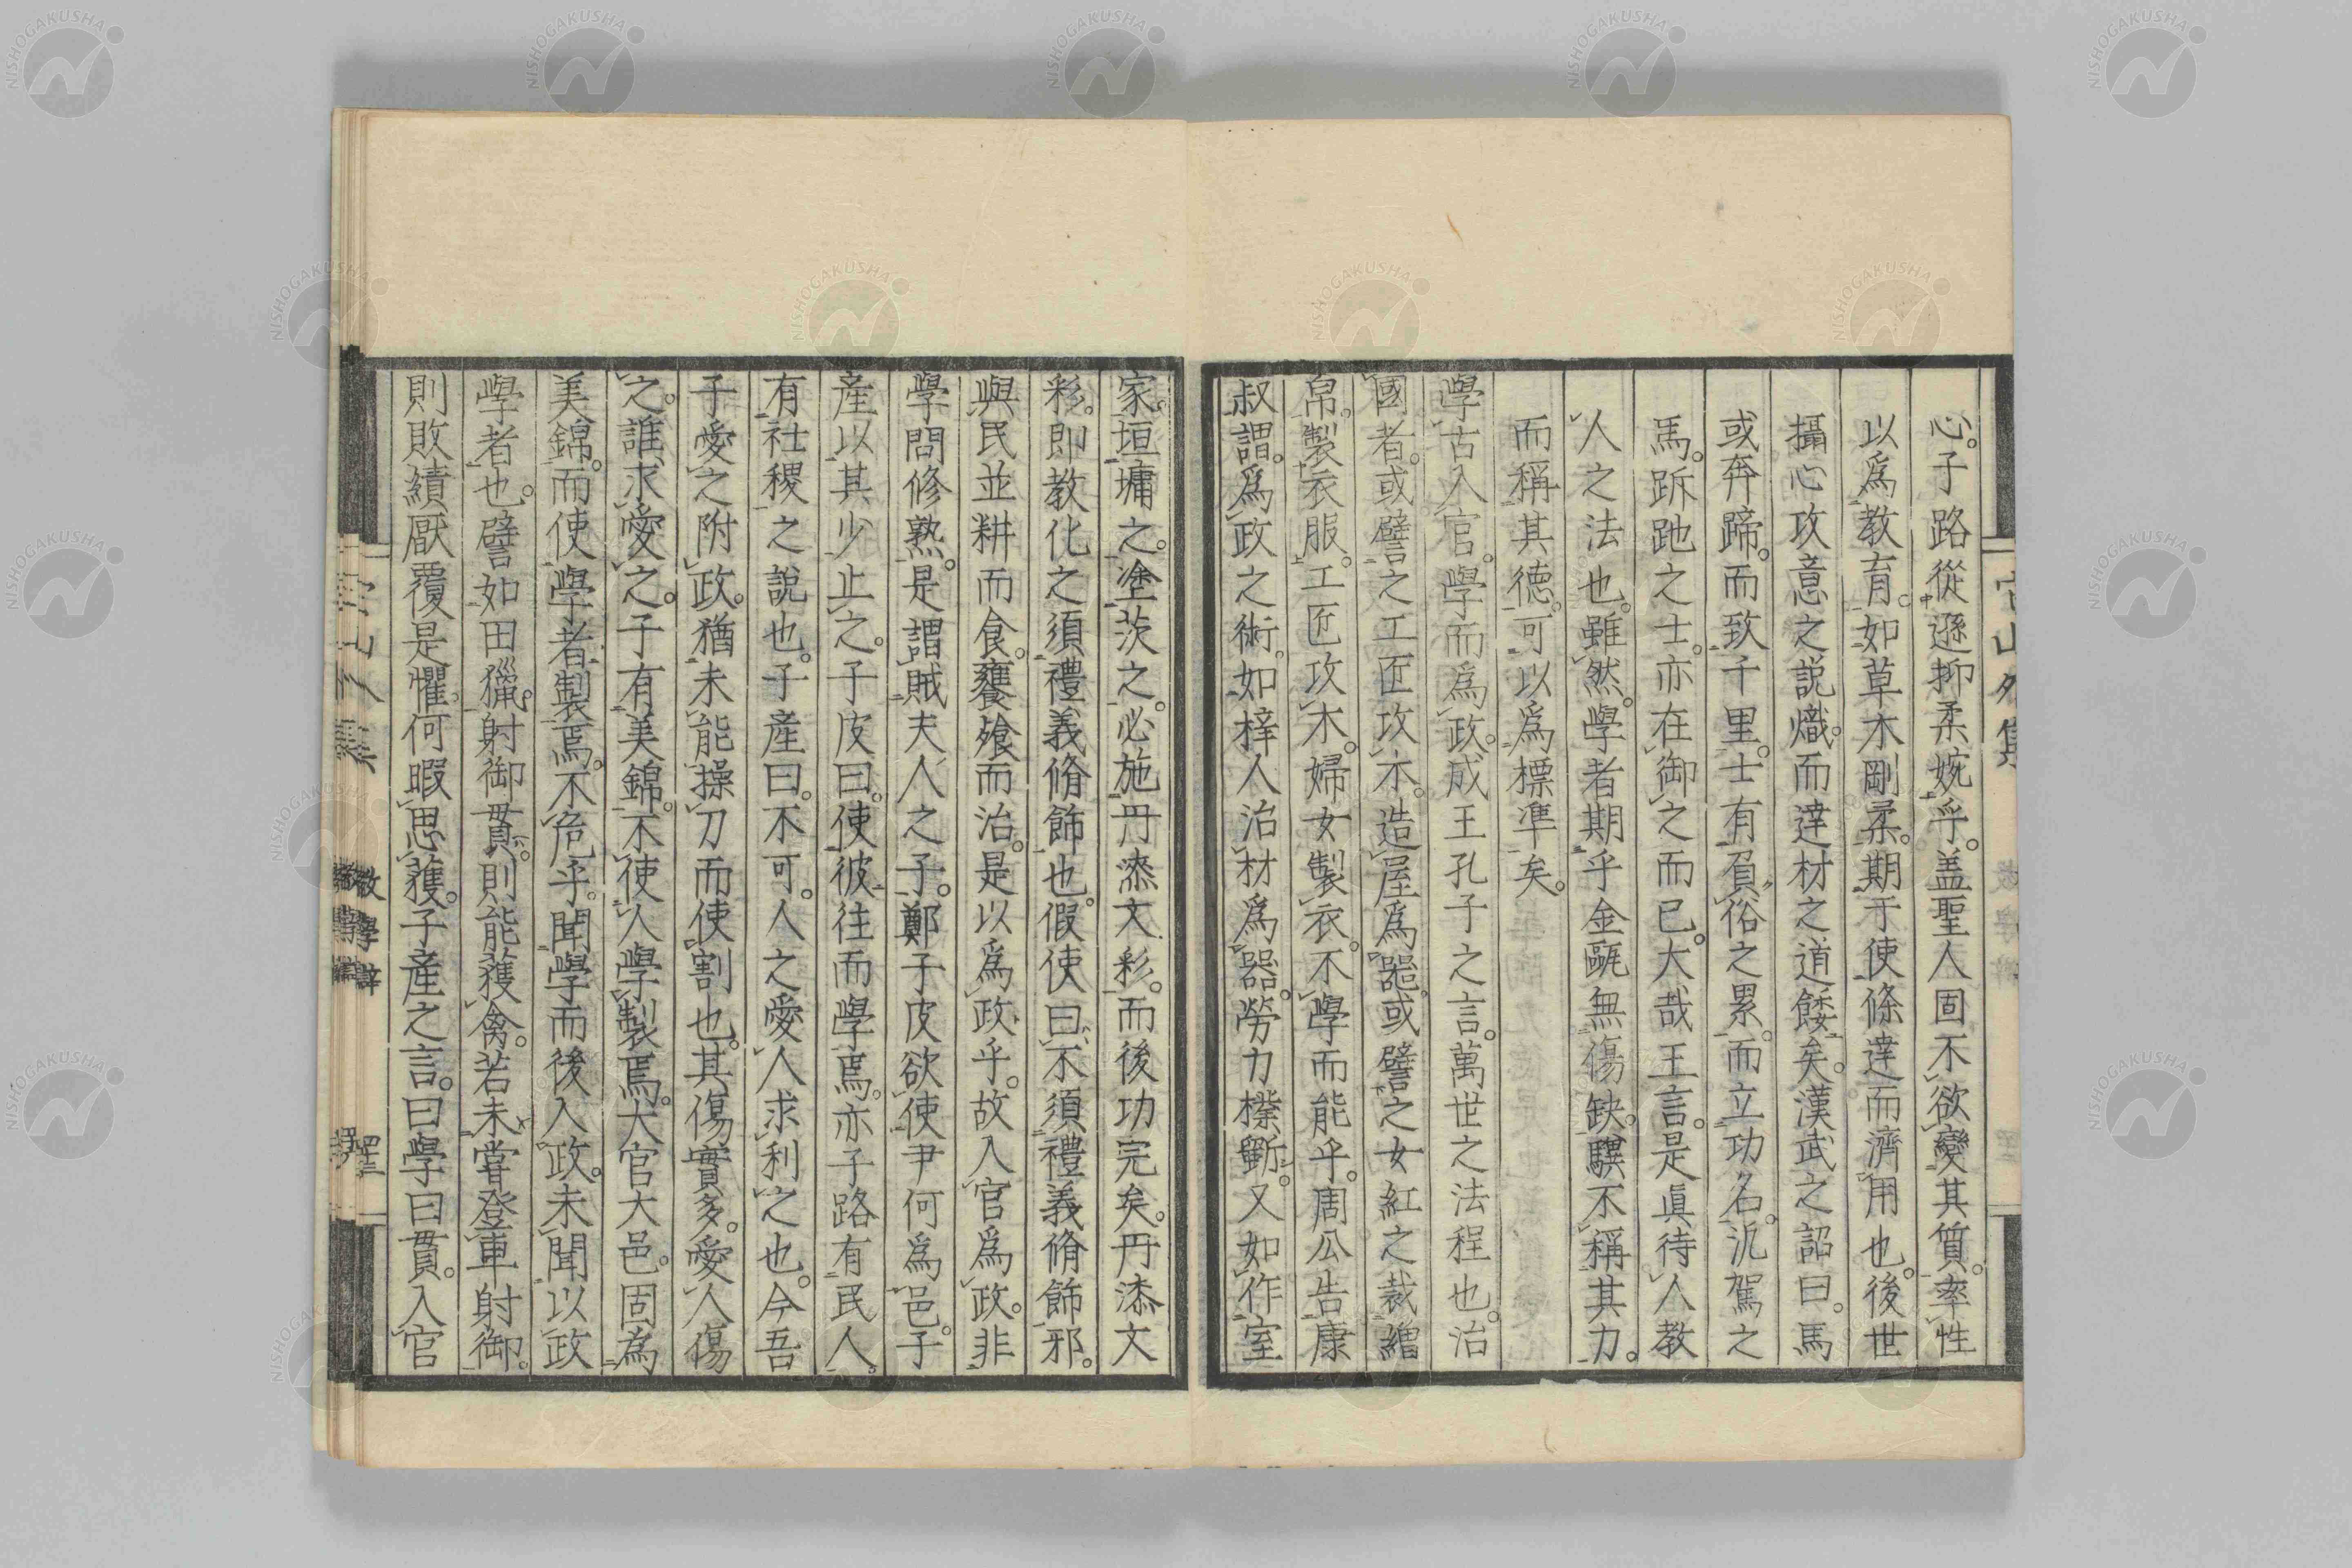 心。子路從遜抑柔婉乎。盖聖人固不欲變其質。率性
以爲教育。如草木剛柔。期于使條達而濟用也。後世
攝心攻意之説熾。而達材之道餒矣。漢武之詔曰。馬
或奔蹄。而致千里。士有負俗之累。而立功名。泛駕之
馬。跅跎之士。亦在御之而已。大哉王言。是眞待人教
人之法也。雖然。學者期乎金甌無傷缺。驥不稱其力。
而稱其德。可以爲標準矣。
學古入官。學而爲政。成王孔子之言。萬世之法程也。治
國者。或譬之工匠攻木。造屋爲器。或譬之女紅之裁繒
帛。製衣服。工匠攻木。婦女製衣。不學而能乎。周公告康
叔謂。爲政之術。如梓人治材爲器。勞力樸斲。又如作室
家。垣墉之。塗茨之。必施丹漆文彩。而後功完矣。丹漆文
彩。即教化之須禮義脩飾也。假使曰。不須禮義脩飾邪。
與民並耕而食。饔飱而治。是以爲政乎。故入官爲政。非
學問修熟。是謂賊夫人之子。鄭子皮欲使尹何爲邑。子
産以其少止之。子皮曰。使彼往而學焉。亦子路有民人。
有社稷之說也。子産曰。不可。人之愛人求利之也。今吾
子愛之附政。猶未能操刀而使割也。其傷實多。愛人傷
之。誰求愛之。子有美錦。不使人學製焉。大官大邑。固為
美錦。而使學者製焉。不危乎。聞學而後入政。未聞以政
學者也。譬如田獵。射御貫。則能獲禽。若未甞登車射御。
則敗績厭覆是懼。何暇思獲。子産之言。曰學曰貫。入官
NISHOGAKUSHA